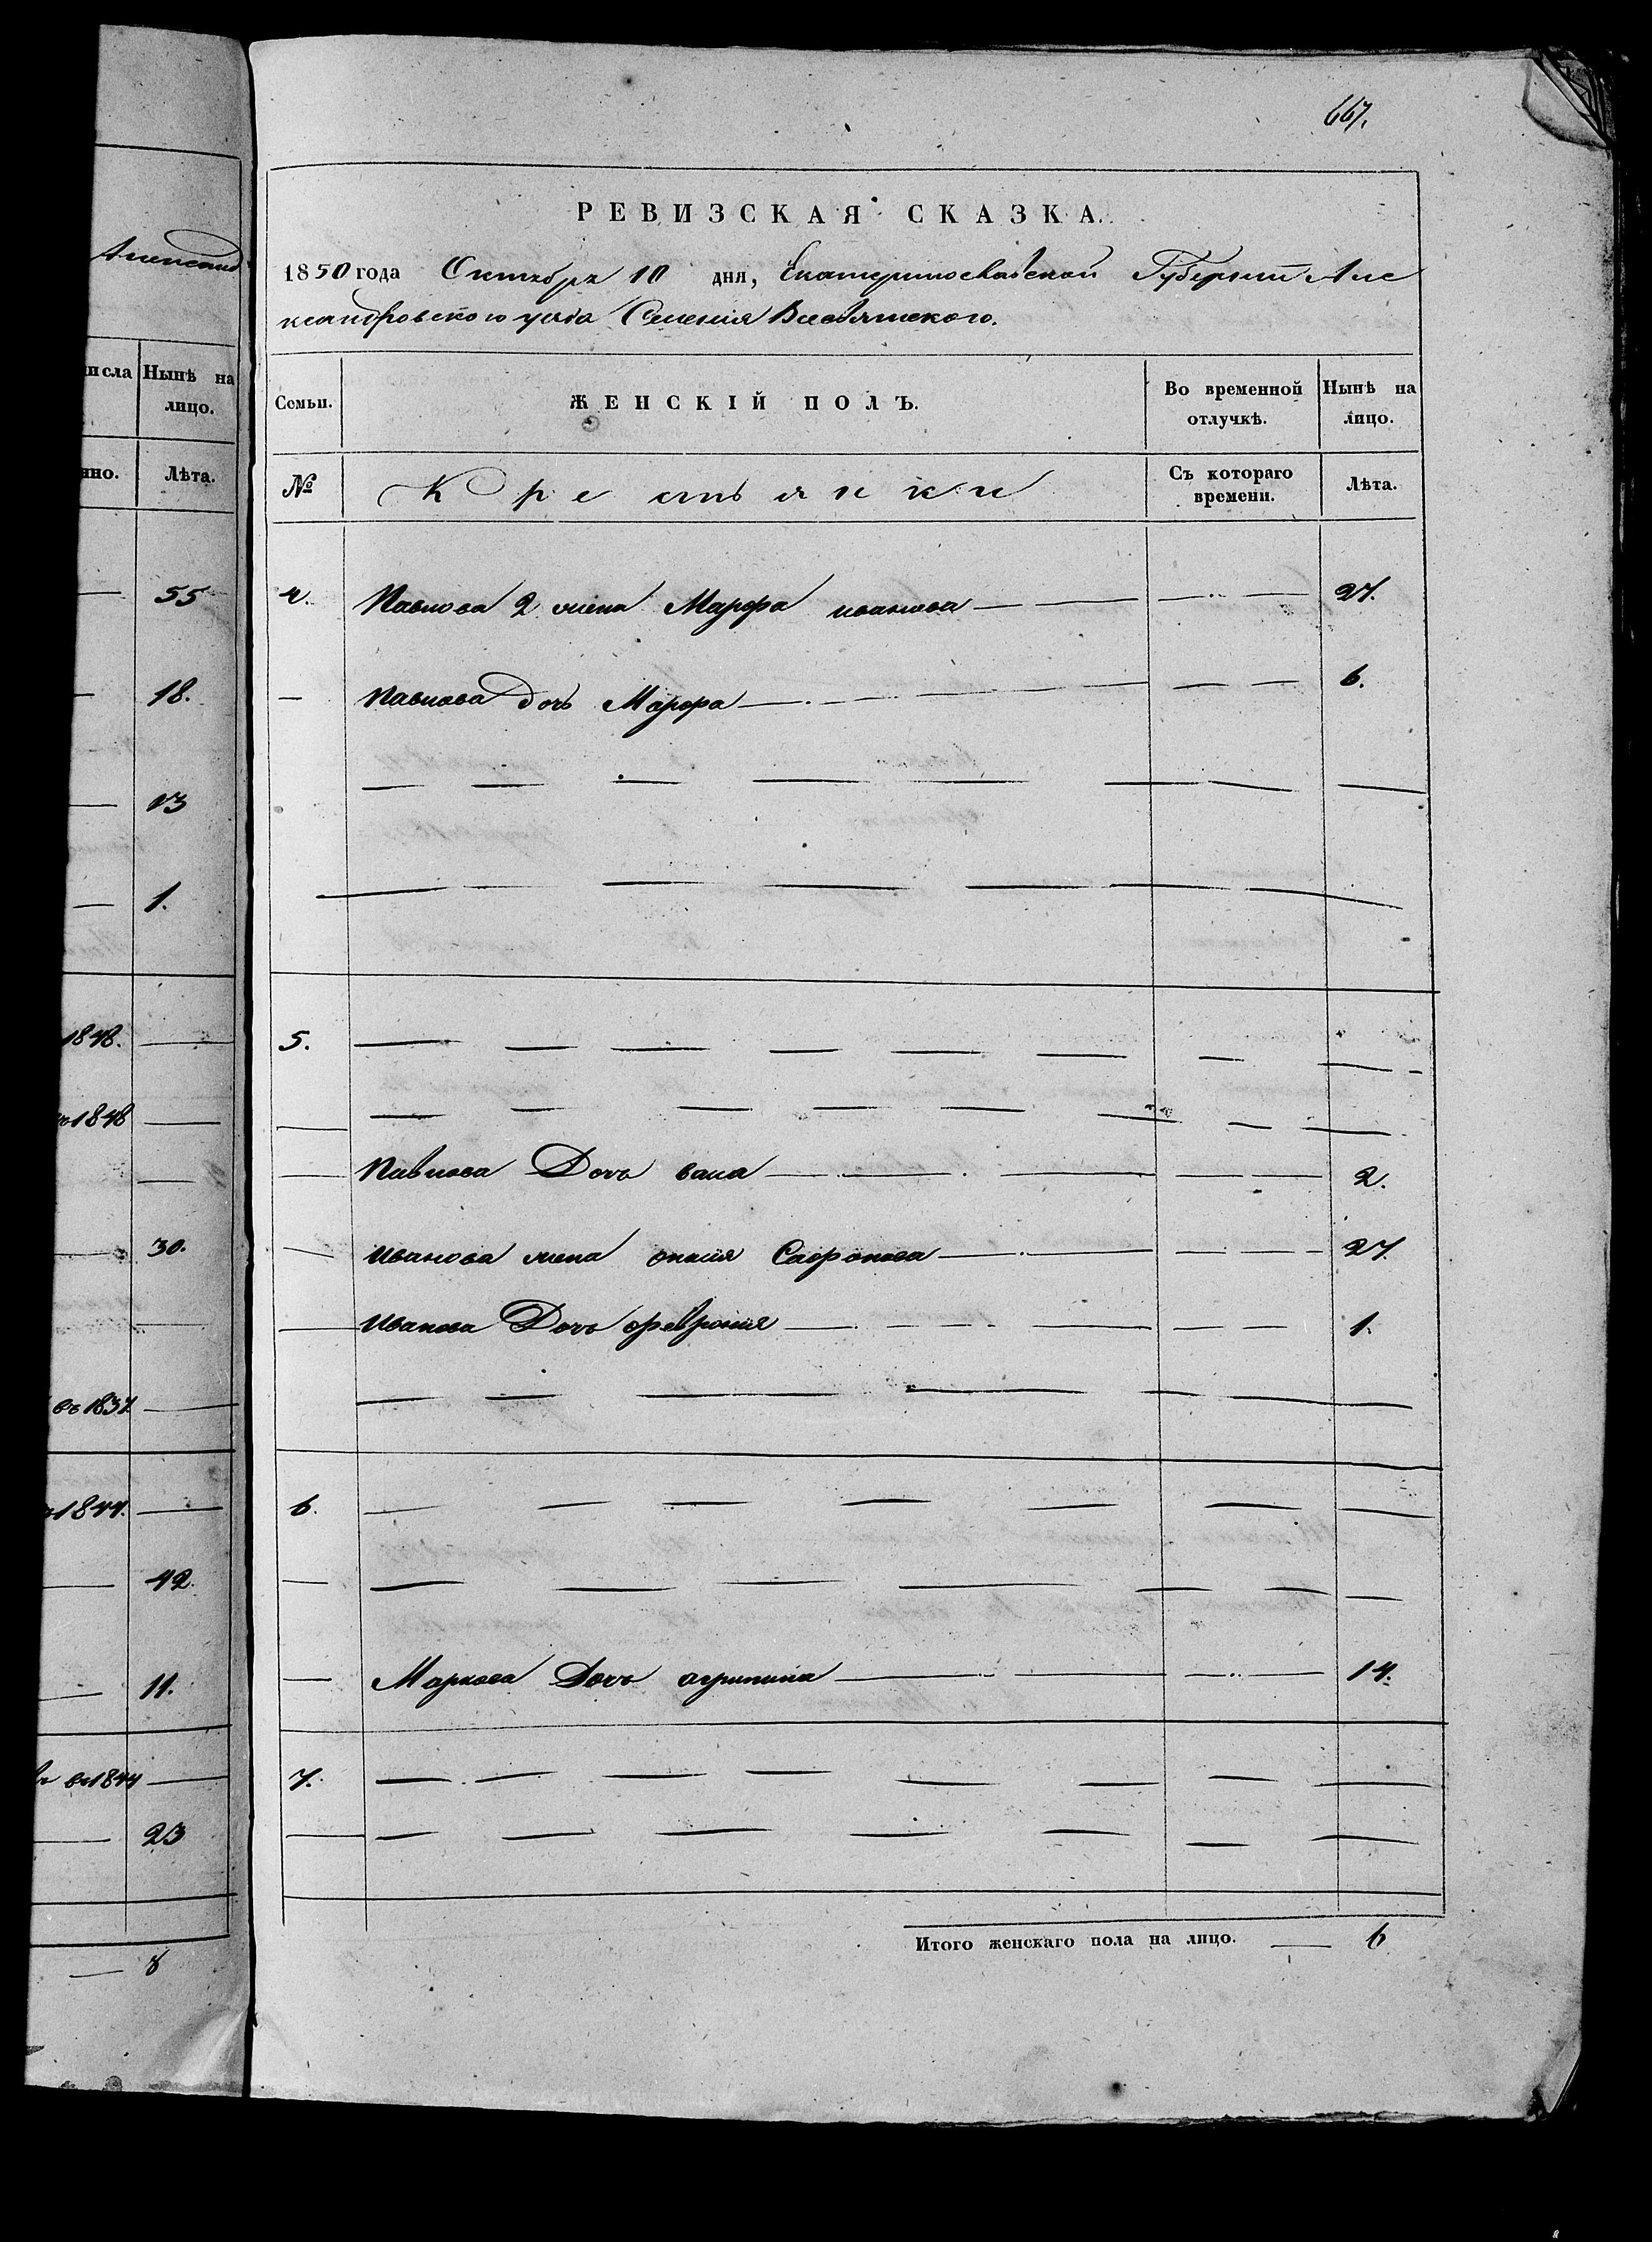 667.
РЕВИЗСКАЯ СКАЗКА.
1850 года Октября 10 дня, Екатеринославской Губернии Але
ксандровского уезда Селения Вселянского.
исла Нынѣ на лицо.
Семьи. ЖЕНСКІЙ ПОЛЪ. Во временной отлучкѣ. Нынѣ на лицо.
нно. Лѣта.
№ Крестьянки Съ котораго времени. Лѣта.
55
4. Павлова 2 жена Марфа иванова 27.
18.
Павлова дочь Марфа 6.
13
1.
1848.
5.
1848
Павлова Дочь 2.
30.
Иванова жена Сафронова 27
Иванова Дочь феврония 1.
въ 1837
1844.
6.
42.
11.
Маркова Дочь агрипина 14.
въ 1844
7.
23
Итого женскаго пола на лицо. 6
8